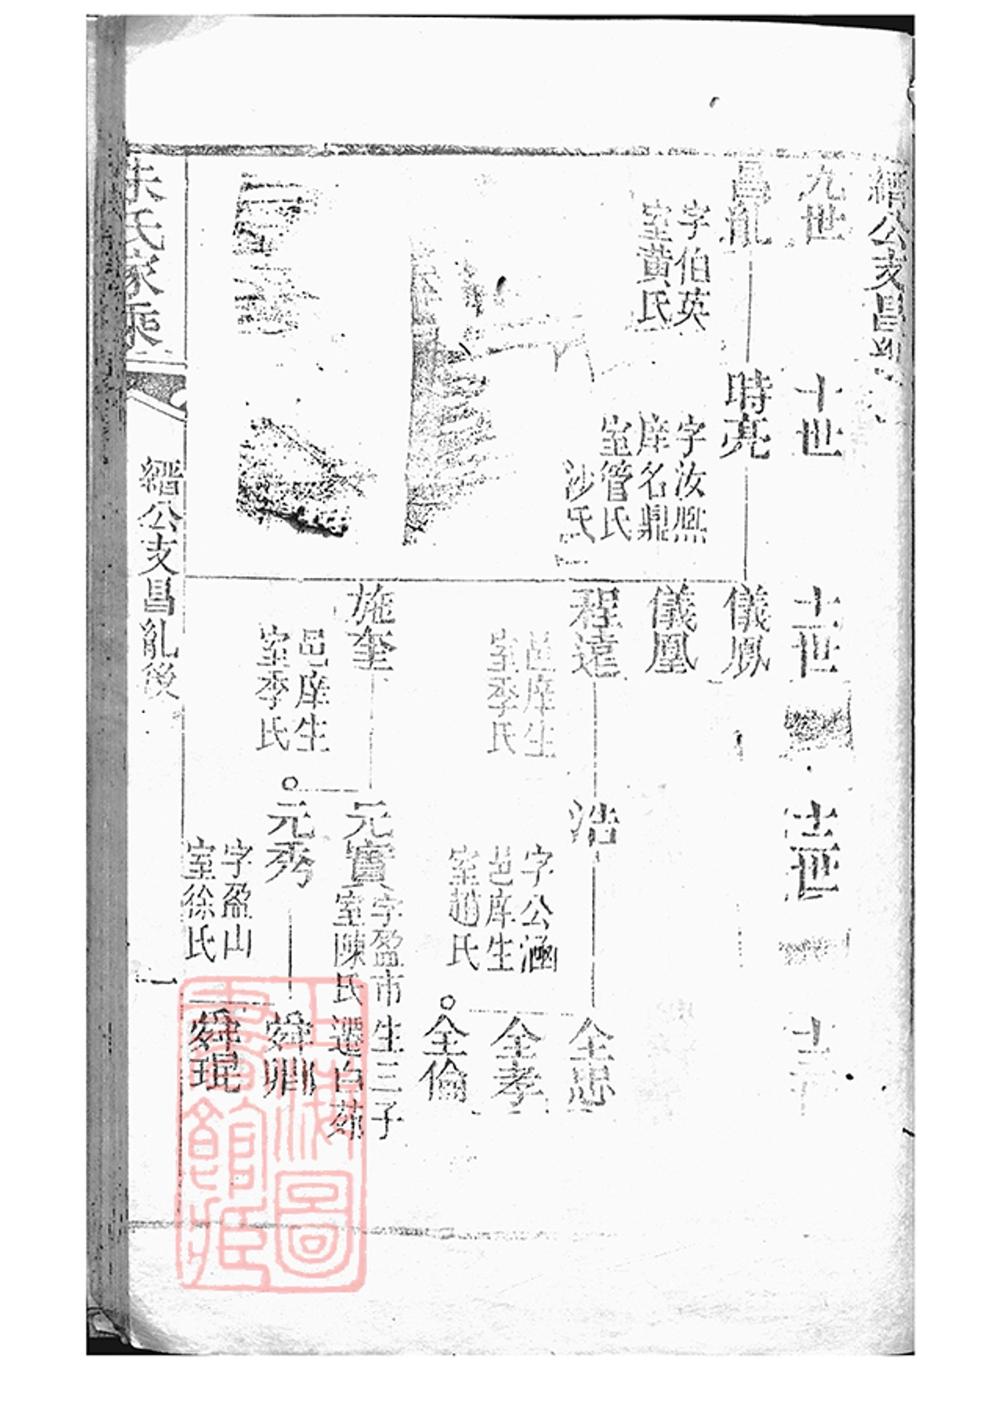 縉公支昌
九世
十世
十一世
十二世
十三
昌胤
字伯英
室黃氏
時亮
字汝熙
庠名鼎
室管氏
沙氏
儀鳳
儀凰
程遠
邑庠生
室季氏
浩
字公涵
邑庠生
室趙氏
全忠
全孝
全倫
施奎
邑庠生
室季氏
元寶
字盈市生三子
室陳氏遷白茆
元秀
字盈山
室徐氏
舜卿
舜琨
朱氏家乘
縉公支昌胤後
一
上海圖
書館藏